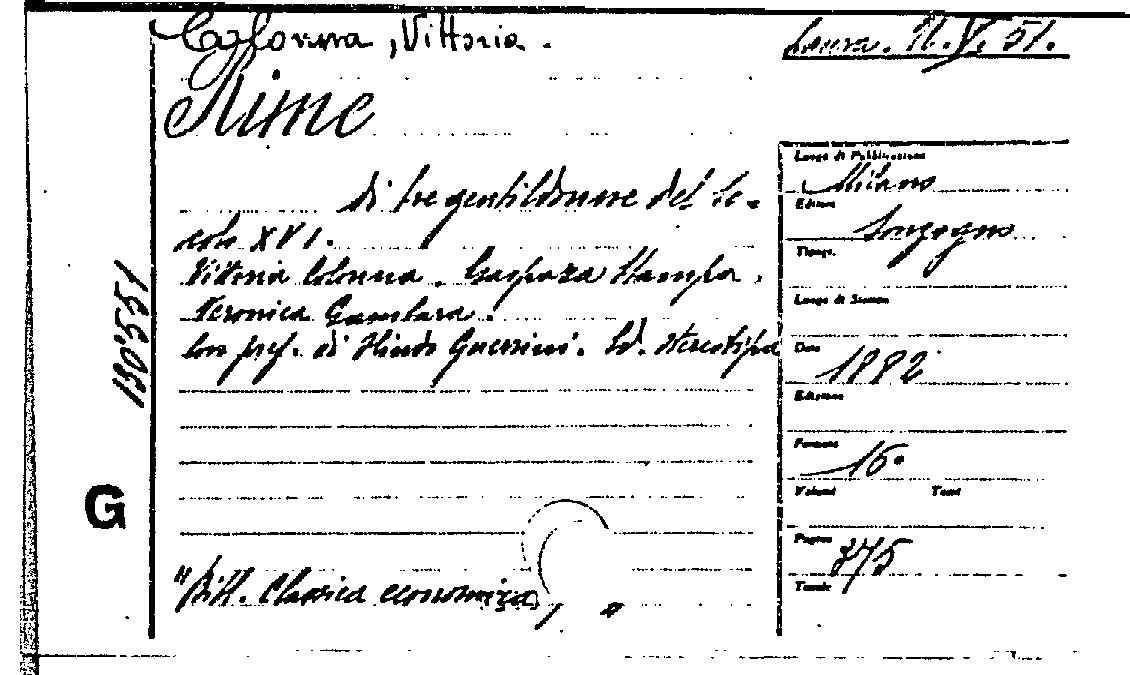 Colonna, Vittoria.
Laura. N.V. 51.
Rime
di tre gentildonne del se-
colo XVI.
Vittoria Colonna. Gaspara Stampa.
Veronica Gambara.
Con pref. di Olindo Guerrini. Ed. stereotipa
130.551
G
"Bibl. Classica economica, "
Luogo di Pubblicazione
Milano
Editore
Sonzogno
Tipogr.
Luogo di Stampa
Data
1882
Edizione
Formato
16°
Volumi Tomi
Pagine
375
Tavole